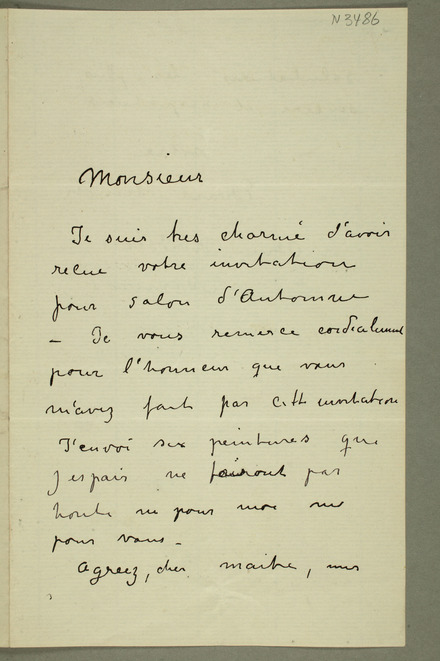 N 3486
Monsieur
Je suis tres charmé d'avoir
recue votre invitation
pour salon d'Automne
– Je vous remerce cordialement
pour l'honneur que vous
m'avez fait par cette invitation
J'envoi six peintures que
j'espais ne fairont pas
honte ne pour moi ne
pour vous –
Agreez, cher maitre, mes